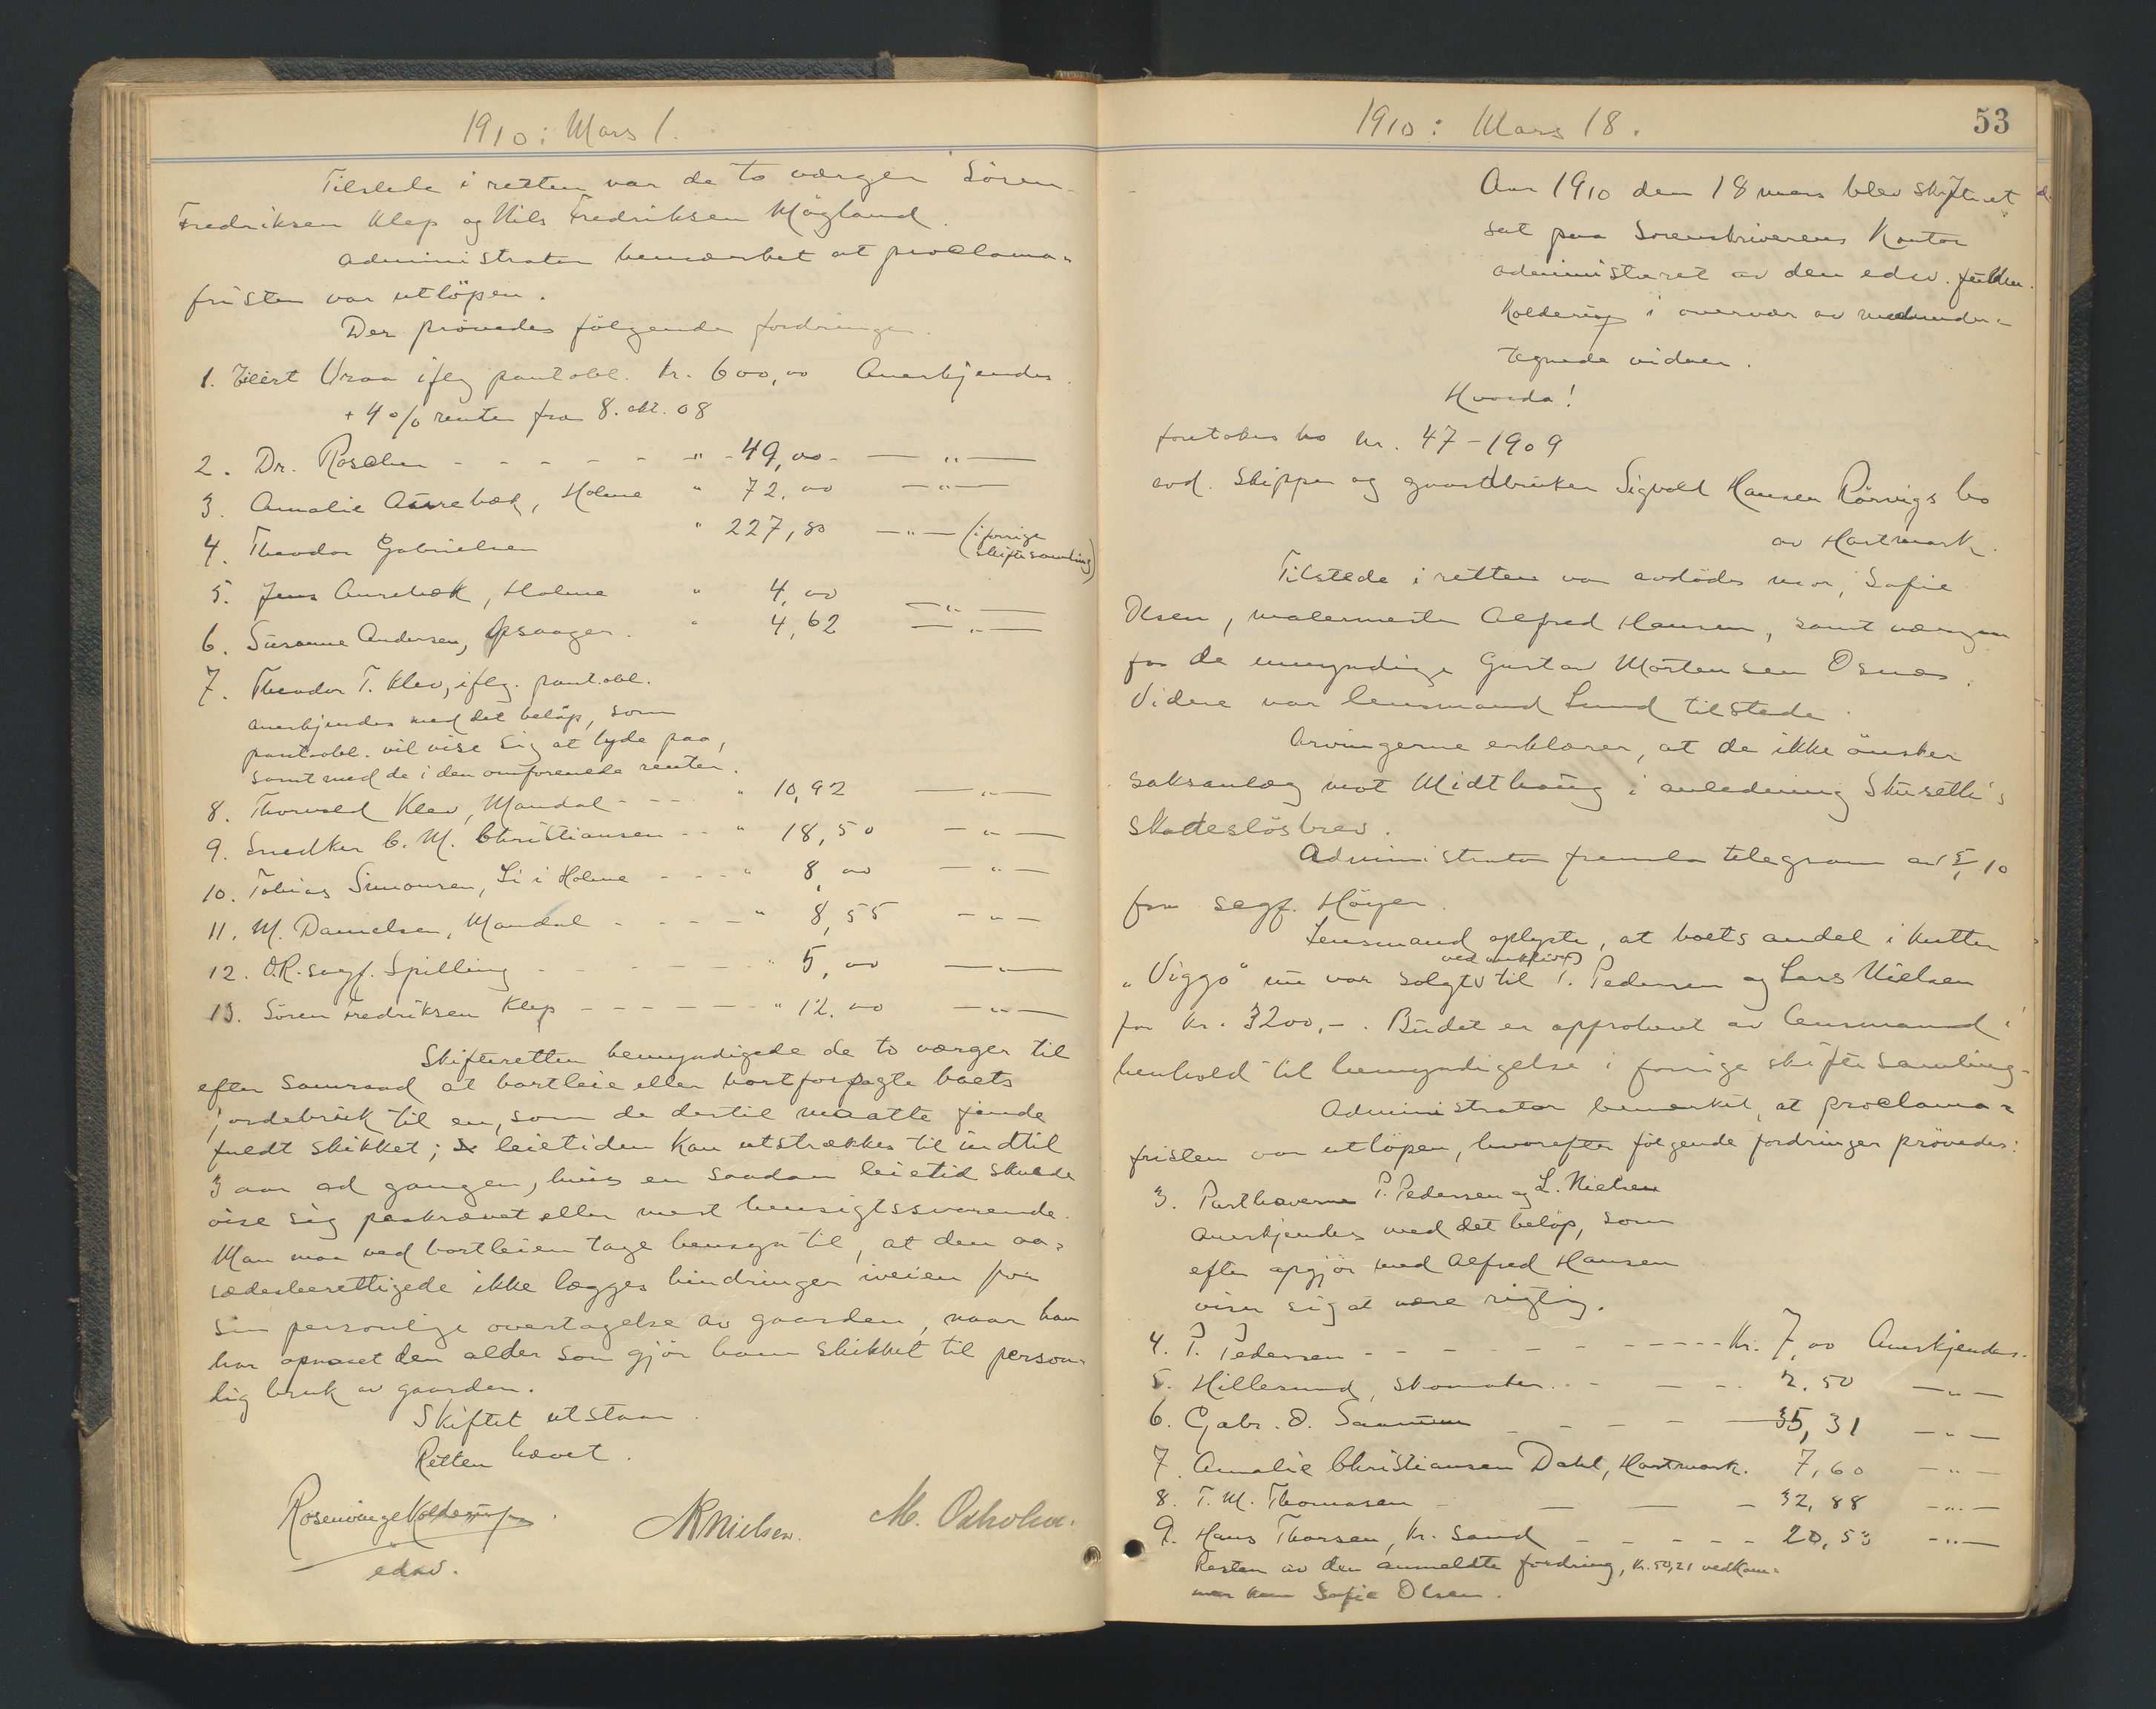 1910: Mars 1.
Tilstede i retten var de to værger Sören
Fredriksen Klep og Nils Fredriksen Mögland.
Administrator bemærket at proclama-
fristen var utlöpen.
Der prövedes fölgende fordringer.
1. Uraa iflg pantobl. kr. 600,00 Anerkjendes.
+ 4 % renter fra 8. okt. 08
2. Dr. Roscher - - - - - " - 49,00 - — " —
3. Amalie Aurebæk, Holme " 72,00 — " —
4. Theodor Gabrielsen " 227,80 — " — (i forrige
skiftesamling)
5. Jens Aurebæk, Holme " 4,00 — " —
6. Susanne Andersen, " 4,62 — " —
7. Theodor T. Klev, iflg. pantobl.
anerkjendes med det belöp, som
pantobl. vil vise sig at lyde paa,
samt med de i den omforenede renter.
8. Thorvald Klev, Mandal - - - " 10,92 — " —
9. Snedker C. M. Christiansen - - " 18,50 — " —
10. Tobias Simonsen, Li i Holme - - - " 8,00 — " —
11. M. Danielsen, Mandal - - - - " 8,55 — " —
12. O.R.sagf. Spilling - - - - - " 5,00 — " —
13. Sören Fredriksen Klep - - - - - " 12,00 — " —
Skifteretten bemyndigede de to værger til
efter samraad at bortleie eller bortforpagte boets
jordebruk til en, som de dertil maatte finde
fuldt skikket; leietiden kan utstrækkes til indtil
3 aar ad gangen, hvis en saadan leietid skulde
vise sig paakrævet eller mest hensigtssvarende.
Man maa ved bortleien tage hensyn til, at den aa-
sædesberettigede ikke lægges hindringer iveien for
sin personlige overtagelse av gaarden, naar han
har opnaaet den alder som gjör ham skikket til person-
lig bruk av gaarden.
Skiftet utstaar.
Retten hævet.
Rosenvinge Kolderup.
edsv.
NRNielsen.
M. Oxholm.
1910: Mars 18.
53
Aar 1910 den 18 mars blev skifteret
sat paa Sorenskriverens Kontor
administreret av den edsv. fuldm.
Kolderup i overvær av medunder-
tegnede vidner.
Hvorda!
foretokes bo nr. 47 - 1909
avd. Skipper og gaardbruker Sigvald Hansen Rörvigs bo
av Hartmark.
Tilstede i retten var avdödes mor, Sofie
Olsen, malermester Alfred Hansen, samt værgen
for de umyndige Gustav Mortensen Osnes.
Videre var lensmand Lund tilstede.
Arvingerne erklærer, at de ikke önsker
saksanlæg mot Midthaug i anledning
skadeslösbrev.
Administrator fremla telegram av
fra sagf. Höyer.
Lensmand oplyste, at boets andel i kutter
ved auktion
"Viggo" nu var solgt til P. Pedersen og Lars Nielsen
for kr. 3200,-. Budet er approberet av lensmand i
henhold til bemyndigelse i forrige skiftesamling.
Administrator bemærket, at proclama-
fristen var utlöpen, hvorefter fölgende fordringer prövedes:
3. Parthaverne P. Pedersen og L. Nielsen
anerkjendes med det belöp, som
efter opgjör med Alfred Hansen
viser sig at være rigtig.
4. P. Pedersen - - - - - - - - Kr. 7,00 Anerkjendes.
5. Hillesund, skomaker. - - - - 2.50 — " —
6. Gabr. O. Saanum - - - - 35,31 — " —
7. Amalie Christiansen Dahl, Hartmark. 7,60 — " —
8. T. M. Thomasen - - - - 32,88 — " —
9. Hans Thorsen, Kr. sand - - - - - 20,53 — " —
Resten av den anmeldte fordring, kr. 50,21 vedkom-
mer kun Sofie Olsen.